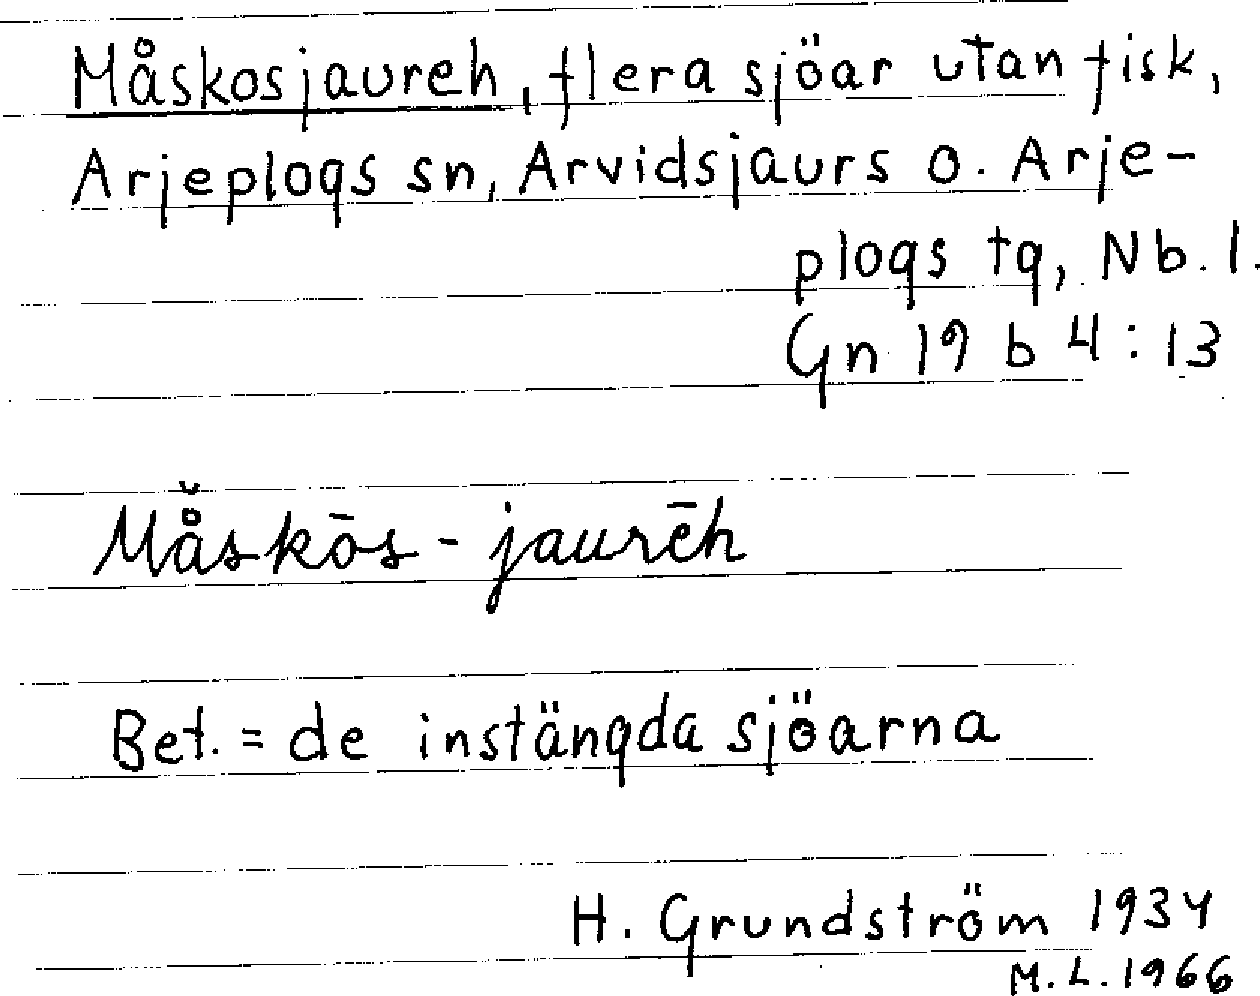 Måskosjaureh, flera sjöar utan fisk,
Arjeplogs sn, Arvidsjaurs o. Arje-
plogs tg, Nb. l.
Gn 19 b 4:13
Må̆skōs-jaurēh
Bet. = de instängda sjöarna
H. Grundström 1934
M.L. 1966